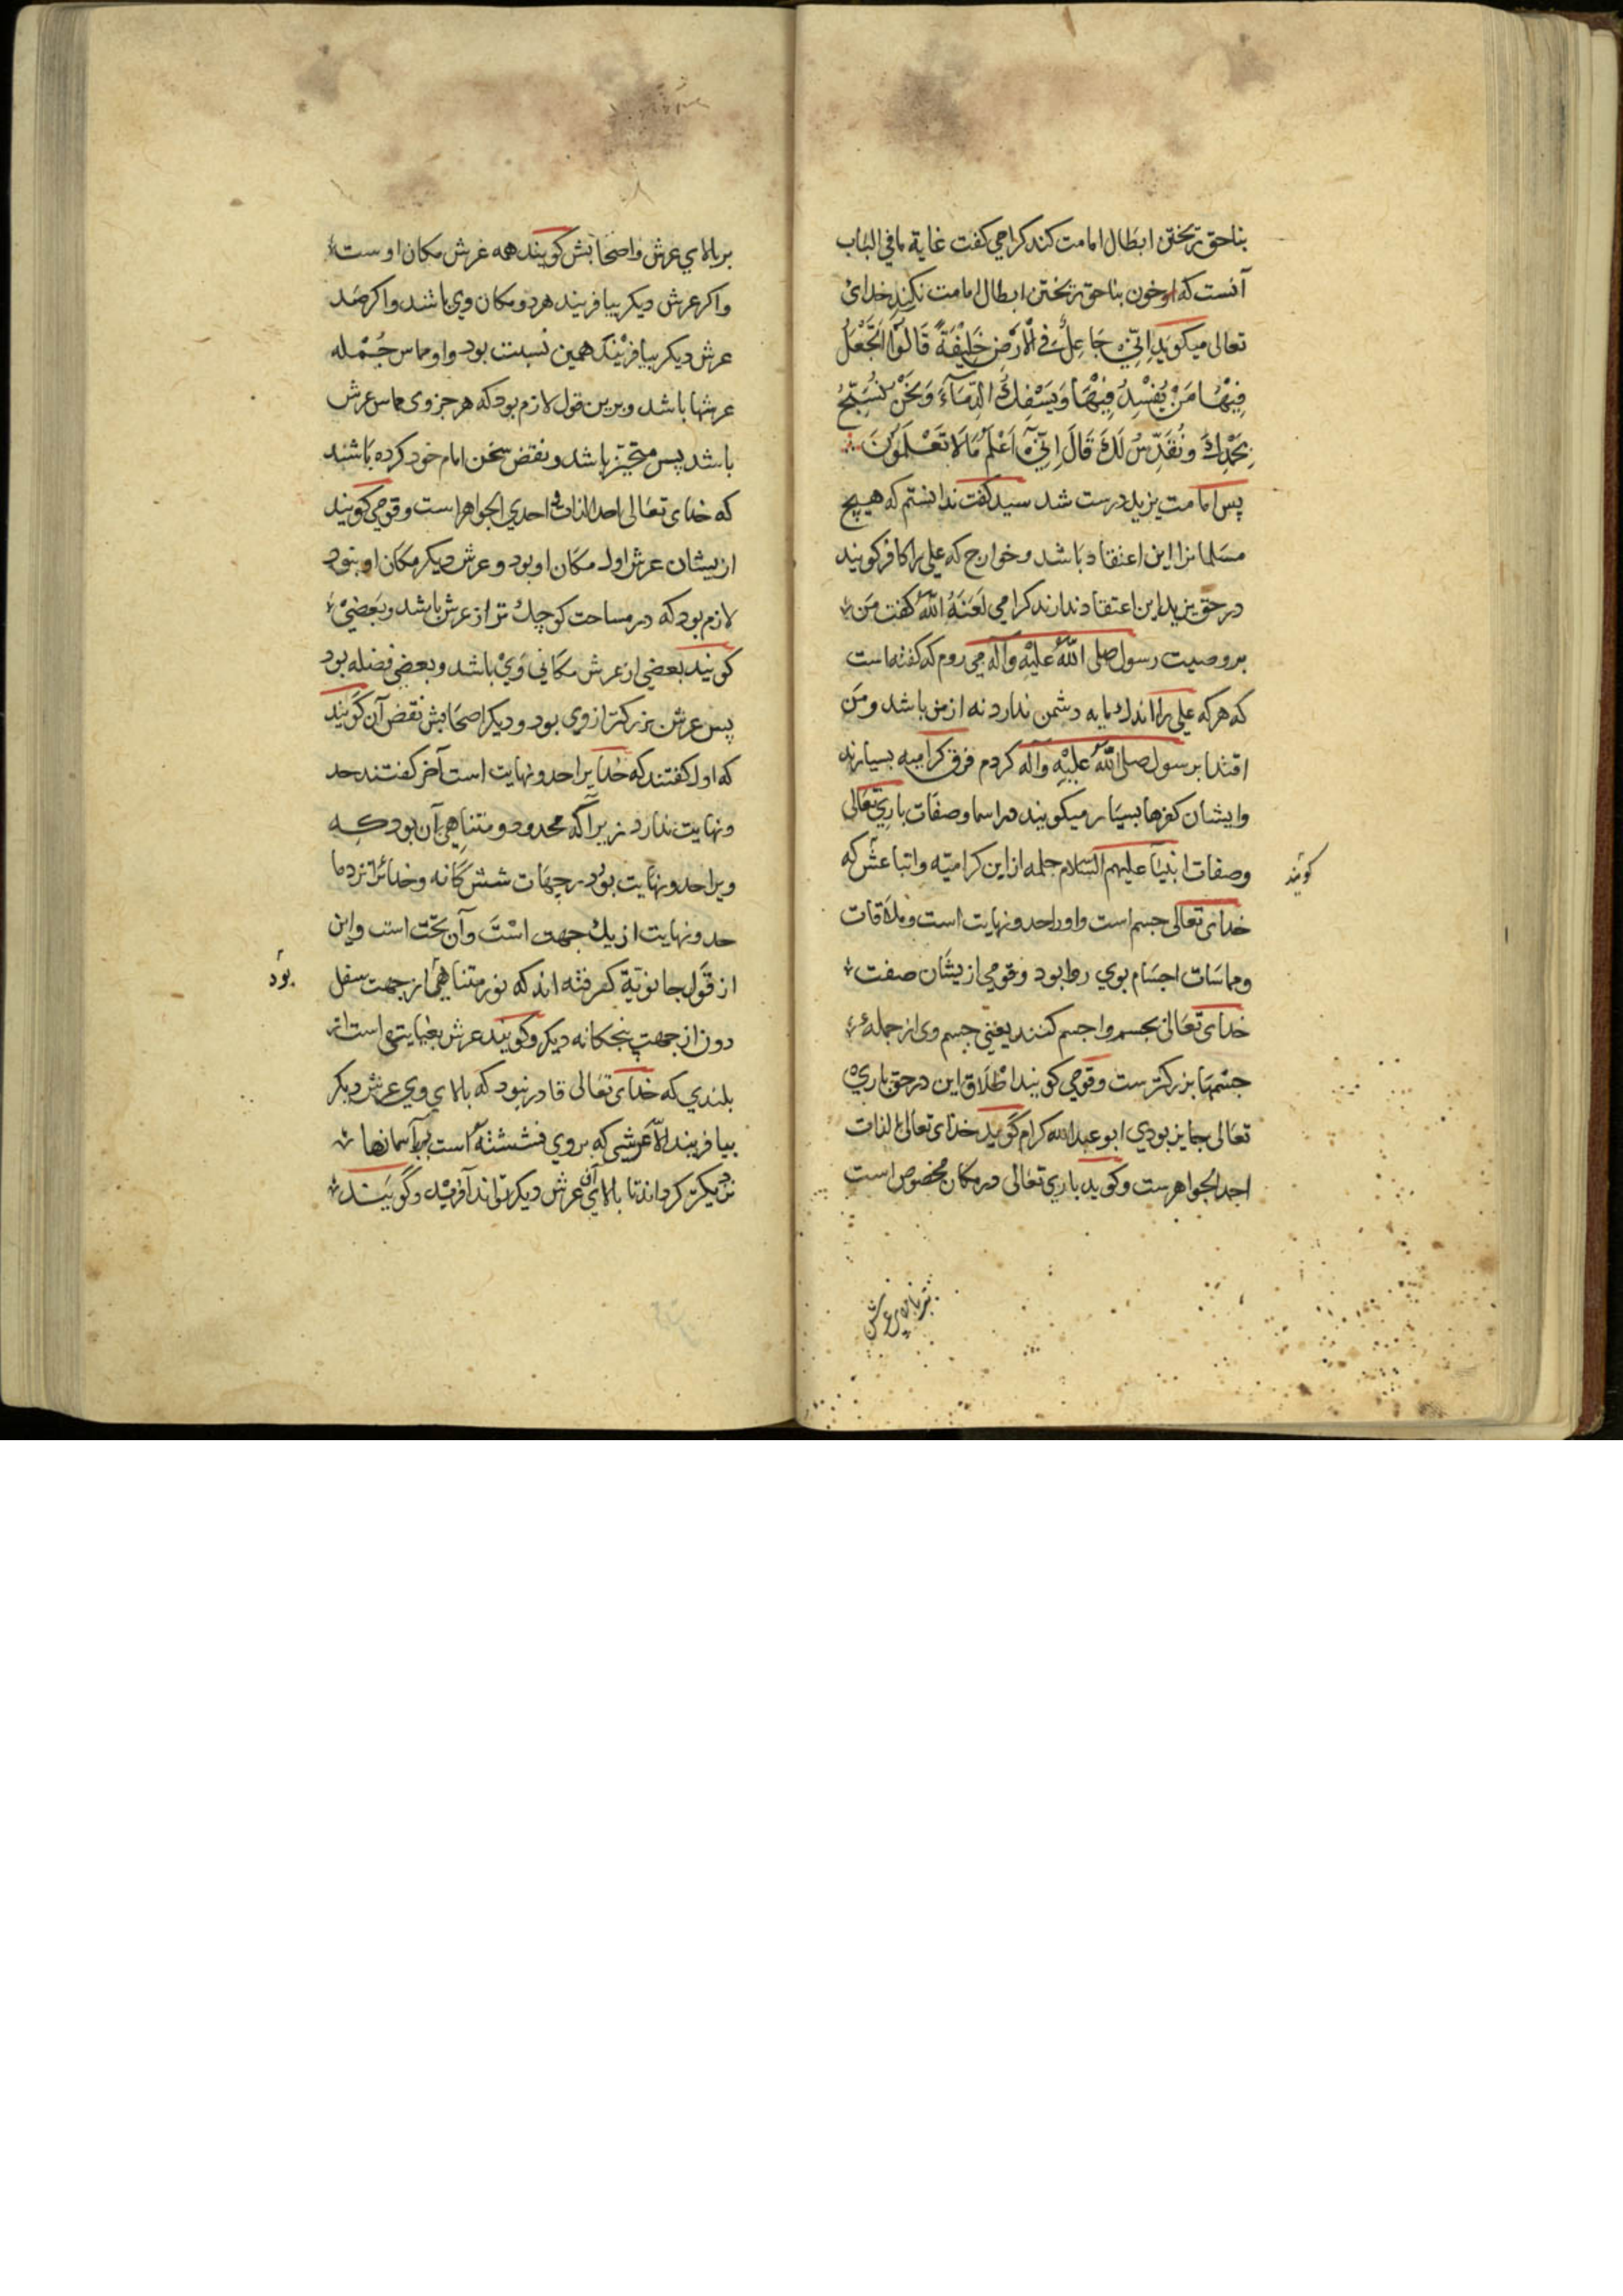 بناحق ریختن ابطال امامت کند کرامی کفت غایة ما فی الباب
آنست که او خون بناحق ریختن ابطال امامت نکند خدای
تعالی میکوید اِنّی جَاعِلٌ فِی الْاَرْضِ خَلِیْفَةً قَالُوْا اَتَجْعَلُ
فِیْهَا مَنْ یُفْسِدُ فِیْهَا وَیَسْفِكُ الدِّمَآءَ وَنَحْنُ نُسَبِّحُ
بِحَمْدِكَ وَنُقَدِّسُ لَكَ قَالَ اِنِّیْ اَعْلَمُ مَا لَا تَعْلَمُوْنَ
پس امامت یزید درست شد سید کفت ندانستم که هیچ
مسلمانرا این اعتقاد باشد و خوارج که علی را کافر کویند
در حق یزید این اعتقاد ندارند کرامی لَعَنَهُ اللّٰهُ کفت من
بر وصیت رسول صلی اللّٰه علیْهِ وآله می روم که کفته است
که هرکه علی را اندك مایه دشمن ندارد نه از من باشد و من
اقتدا برسول صلی اللّٰه عَلَیْهِ وآله کردم فرق کرامیه بسیارند
وایشان کفرها بسیار میکویند در اسما وصفات باری تعالی
وصفات انبیآ علیهم السلام جمله از این کرامیّه واتباعش که
کویند
خدای تعالی جسم است واورا حد ونهایت است وملاقات
ومماسات اجسام بوی روا بود وقومی ازیشان صفت
خدای تعالی بجسم واجسم کنند یعنی جسم وی از جملهٔ
جسمها بزرکترست وقومی کویند اطْلَاق این در حق باری
تعالی جایز بودی ابو عبد الله کرام کوید خدای تعالی الذات
احد الجواهرست وکوید باری تعالی در مکان مخصوص است
بر بالای عرش
بر بالای عرش واصحابش کویند همه عرش مکان اوست
واکر عرش دیکر بیافریند هر دو مکان وی باشند واکر صد
عرش دیکر بیافرینَد همین نسبت بود واو مماس جُمْله
عرشها باشد وبرین قول لازم بود که هر جزوی مماس عرش
باشد پس متحیّز باشد ونقض سخن امام خود کرده باشند
که خدای تعالی احد الذات احدی الجواهر است وقومی کویند
ازیشان عرش اول مکان او بود وعرش دیکر مکان او نبود
لازم بود که در مساحت کوچك تر از عرش باشد وبعضی
کویند بعضی از عرش مکانی وَیْ باشد وبعضی فضله بود
پس عرش بزرکتر از وی بود ودیکر اصحابش نقض آن کویند
که اول کفتند که خدایرا حد ونهایت است آخر کفتند حد
ونهایت ندارد زیرا که محدود ومتناهی آن بود که
ویرا حد ونهایت بود بجهات شش کانه وخدائرا نزد ما
حد ونهایت از یك جهت اسْت وآن تحت است واین
از قول مانویّة کفر فته اند که نور متناهی از جهت سفل
بود
دون از جهت پنجکانه دیکر وکویند عرش بغایتی است از
بلندی که خدای تعالی قادر نبود که بالای وی عرش دیکر
بیافریند الّا عرشی که بروی نشسته است بآسمانها
نزدیکتر کرداند تا بالای آن عرش دیکر تواند آفرید وکویَند